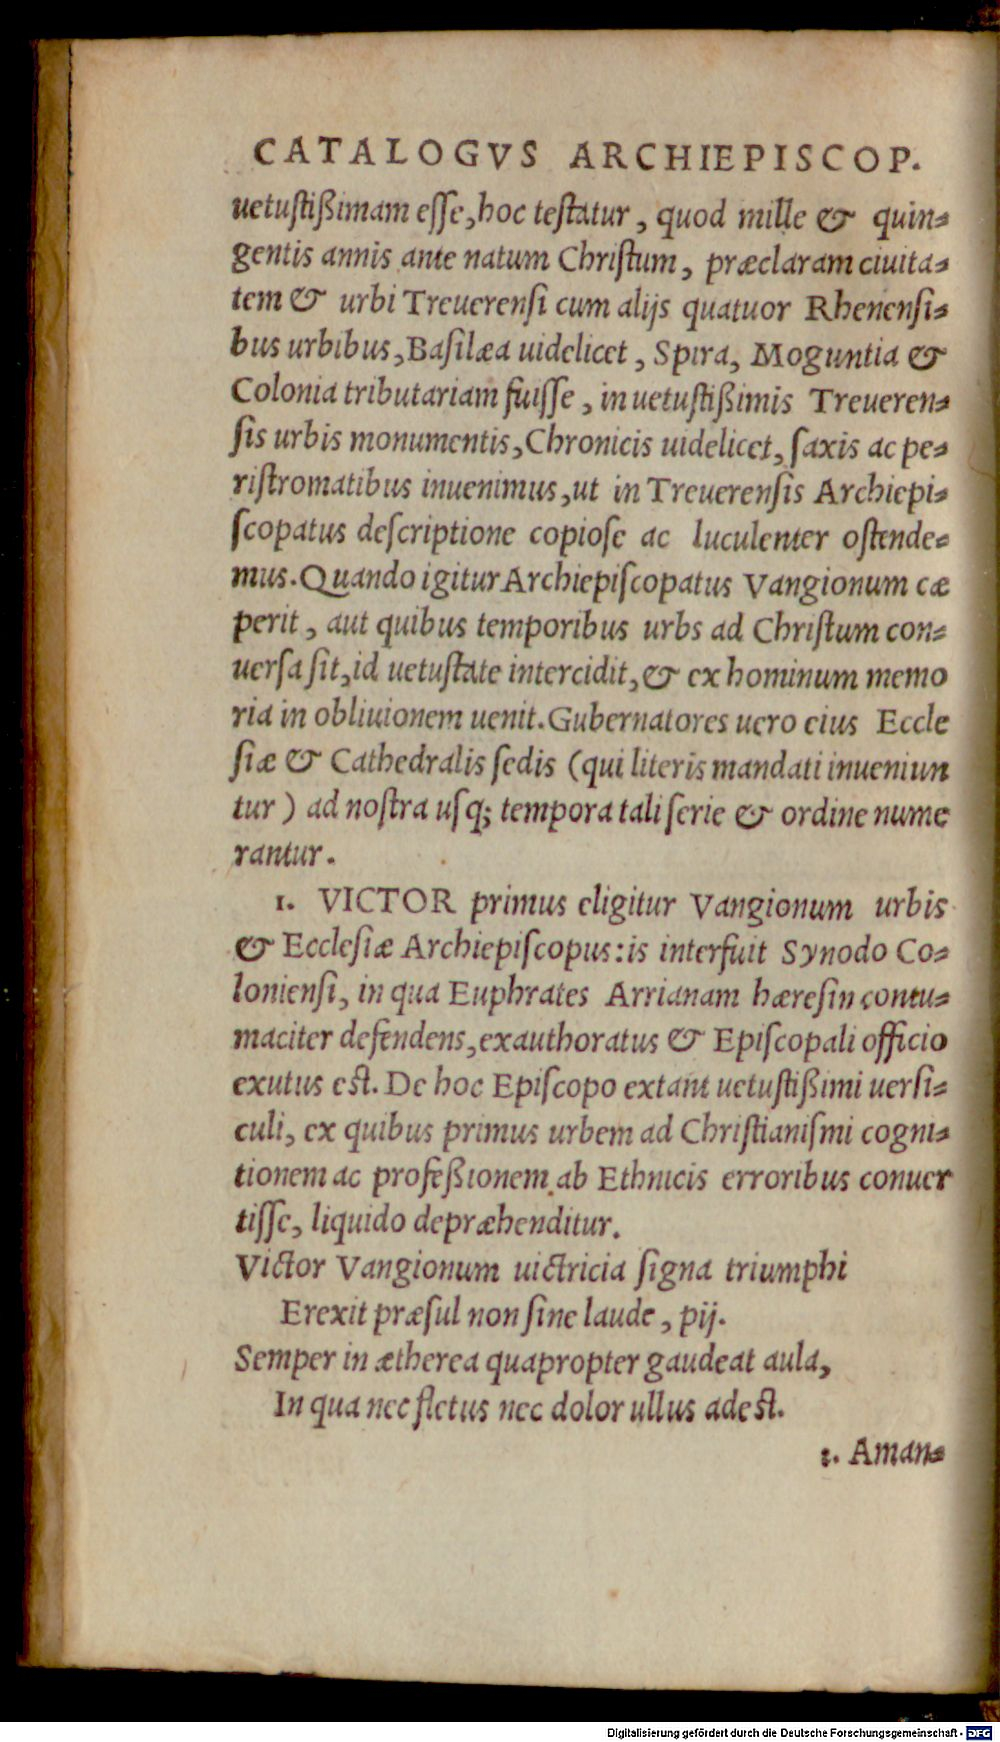 CATALOGVS ARCHIEPISCOP.
uetustißimam esse, hoc testatur, quod mille & quin-
gentis annis ante natum Christum, præclaram ciuita-
tem & urbi Treuerensi cum alijs quatuor Rhenensi-
bus urbibus, Basilæa uidelicet, Spira, Moguntia &
Colonia tributariam fuisse, in uetustißimis Treueren-
sis urbis monumentis, Chronicis uidelicet, saxis ac pe-
ristromatibus inuenimus, ut in Treuerensis Archiepi-
scopatus descriptione copiose ac luculenter ostende-
mus. Quando igitur Archiepiscopatus Vangionum cæ
perit, aut quibus temporibus urbs ad Christum con-
uersa sit, id uetustate intercidit, & ex hominum memo
ria in obliuionem uenit. Gubernatores uero eius Eccle
siæ & Cathedralis sedis (qui literis mandati inueniun
tur) ad nostra usq; tempora tali serie & ordine nume
rantur.
1. VICTOR primus eligitur Vangionum urbis
& Ecclesiæ Archiepiscopus: is interfuit Synodo Co-
loniensi, in qua Euphrates Arrianam hæresin contu-
maciter defendens, exauthoratus & Episcopali officio
exutus est. De hoc Episcopo extant uetustißimi uersi-
culi, ex quibus primus urbem ad Christianismi cogni-
tionem ac profeßionem ab Ethnicis erroribus conuer
tisse, liquido depræhenditur.
Victor Vangionum uictricia signa triumphi
Erexit præsul non sine laude, pij.
Semper in ætherea quapropter gaudeat aula,
In qua nec fletus nec dolor ullus adest.
2. Aman-
Digitalisierung gefördert durch die Deutsche Forschungsgemeinschaft - DFG